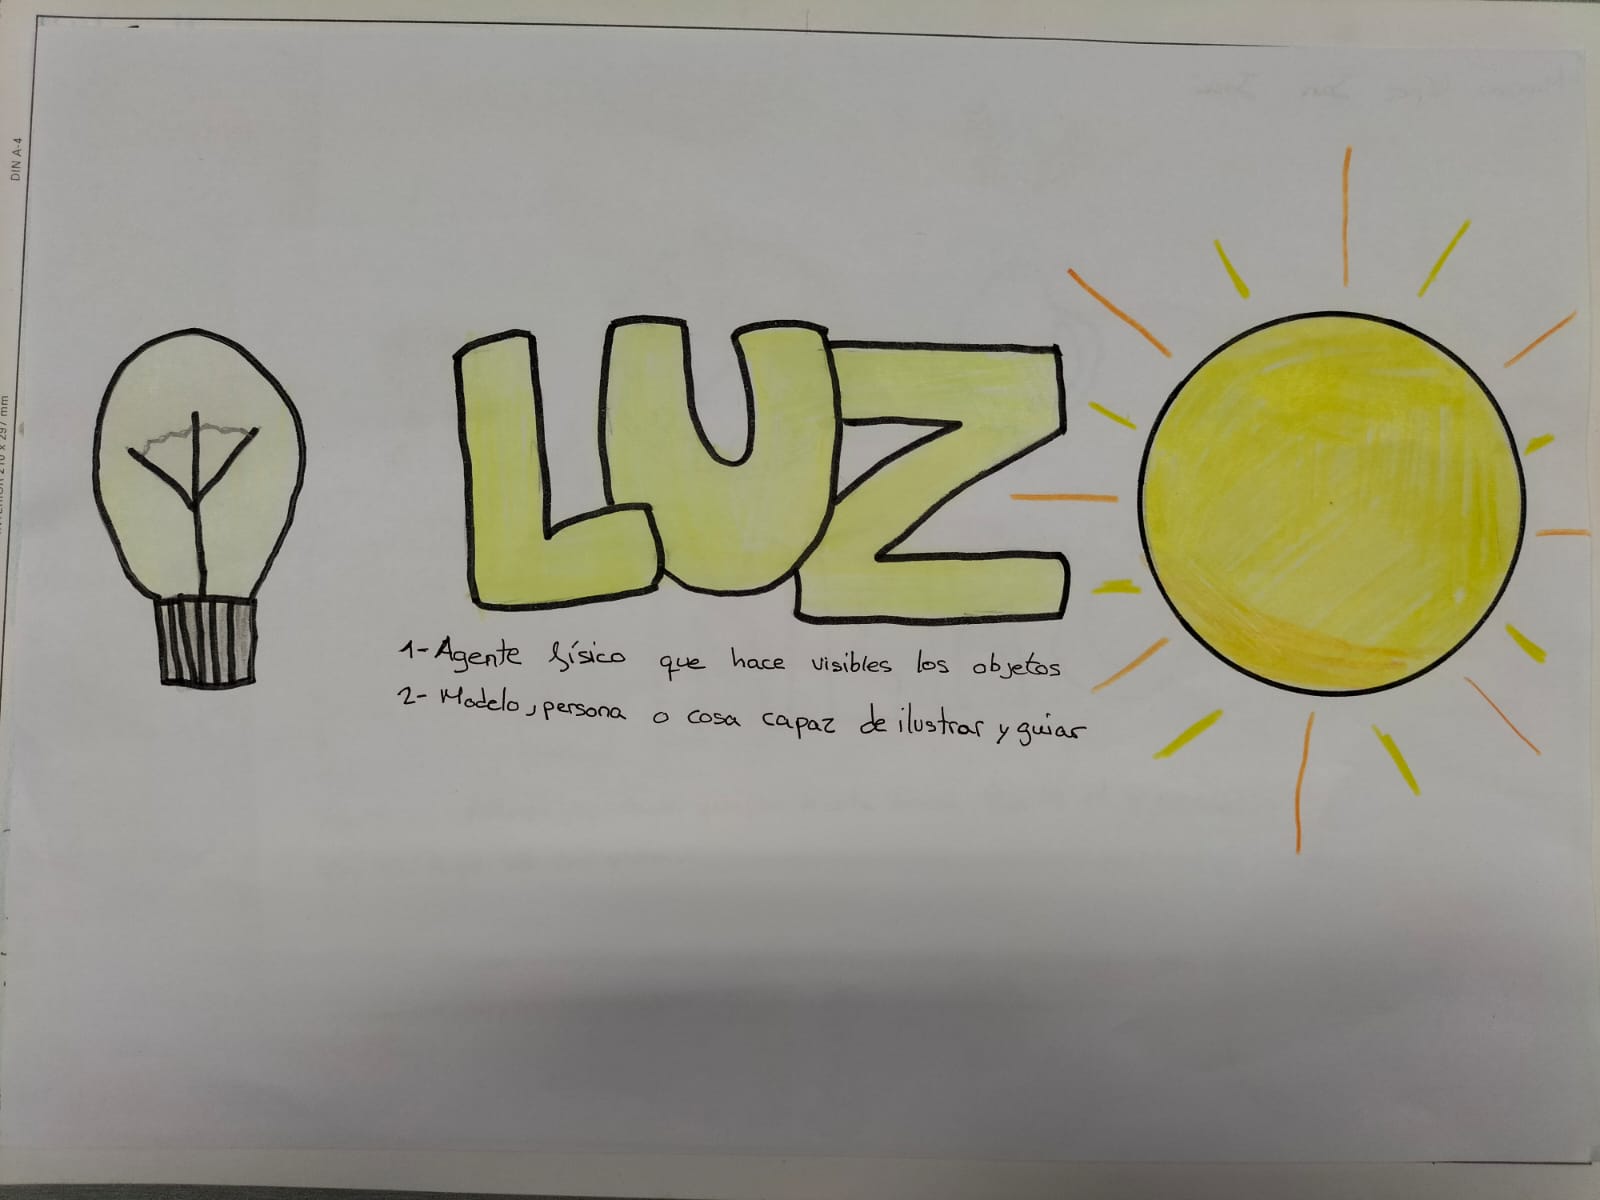 DIN A-4
LUZ
1- Agente físico que hace visibles los objetos
2- Modelo, persona o cosa capaz de ilustrar y guiar